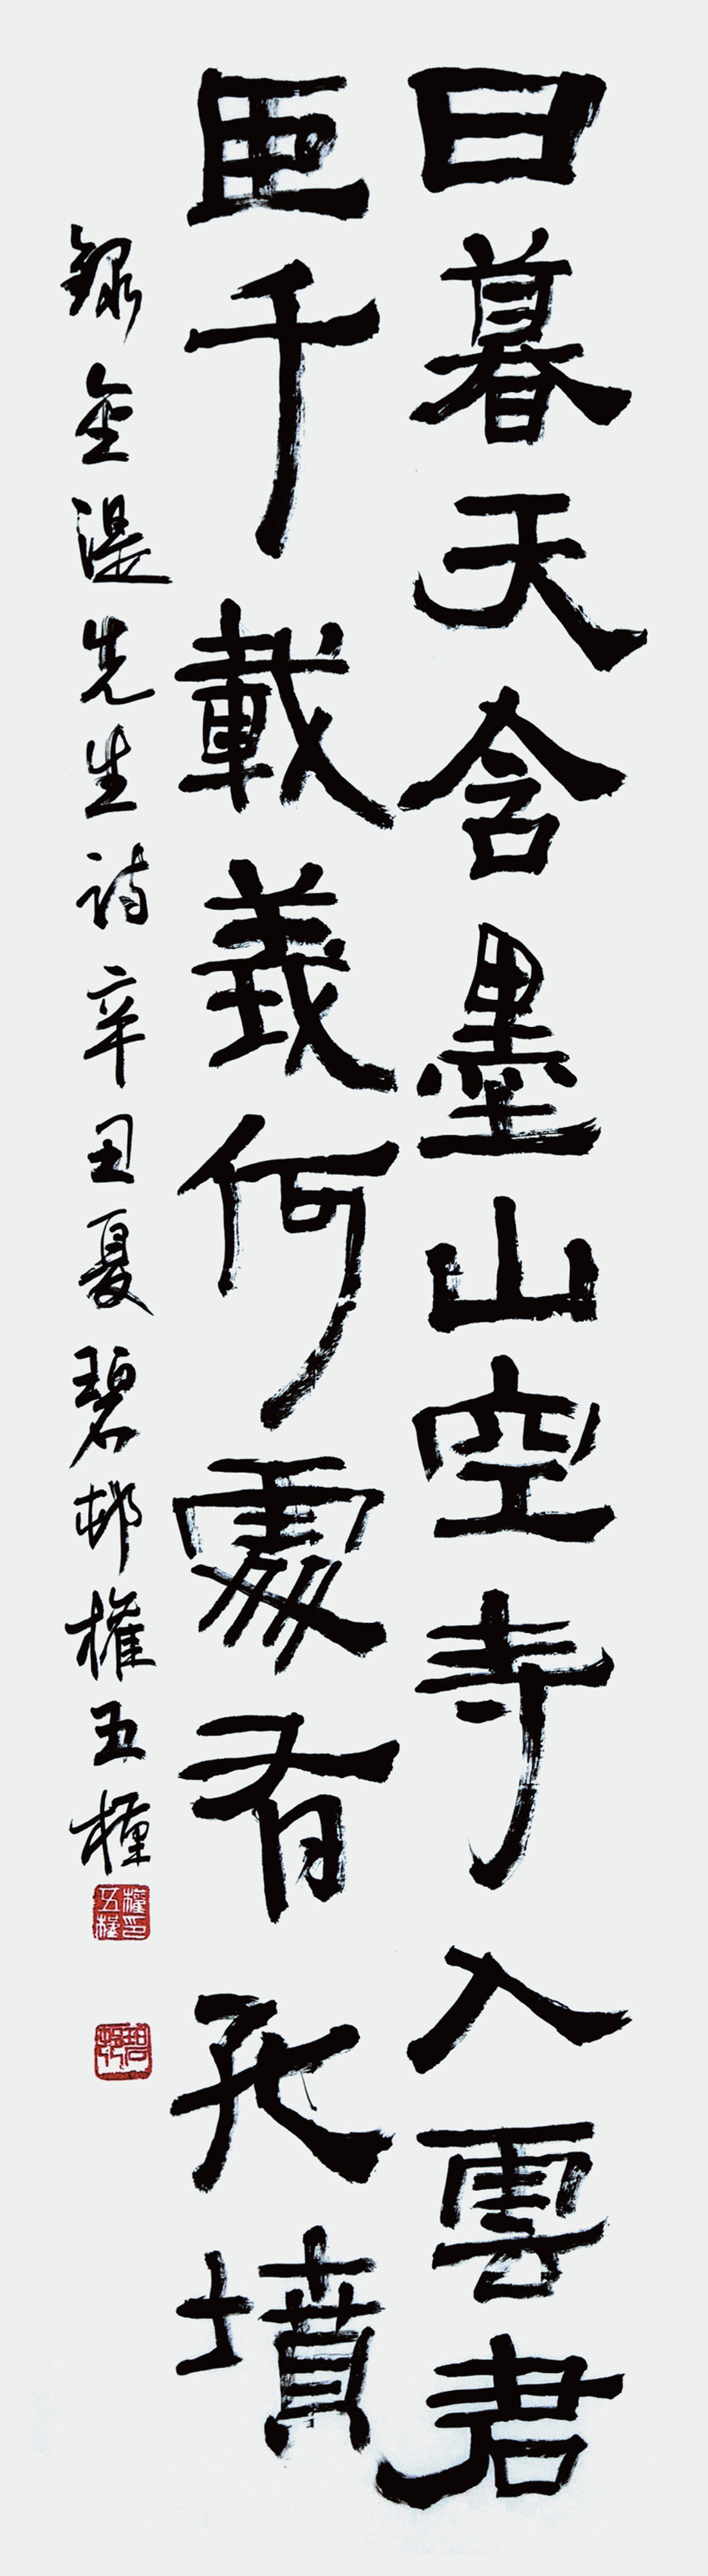 日暮天含墨山空寺入雲君
臣千載義何處有孔墳
錄金湜先生詩辛丑夏碧邨權五槿
權五槿印
碧邨